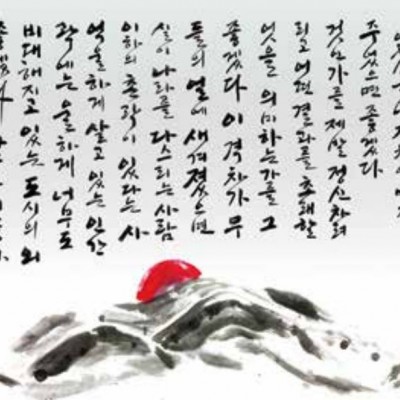 비대해지고 있는 도시의 외
곽에는 울하게 너무도
억울하게 살고 있는 인간
이하의 촌락이 있다는 사
실이 나라를 다스리는 사람
들의 얼에 새겨졌으면
좋겠다 이 격차가 무
엇을 의미하는가를 그
리고 어떤 결과를 초래할
것인가를 제발 정신차려
주었으면 좋겠다